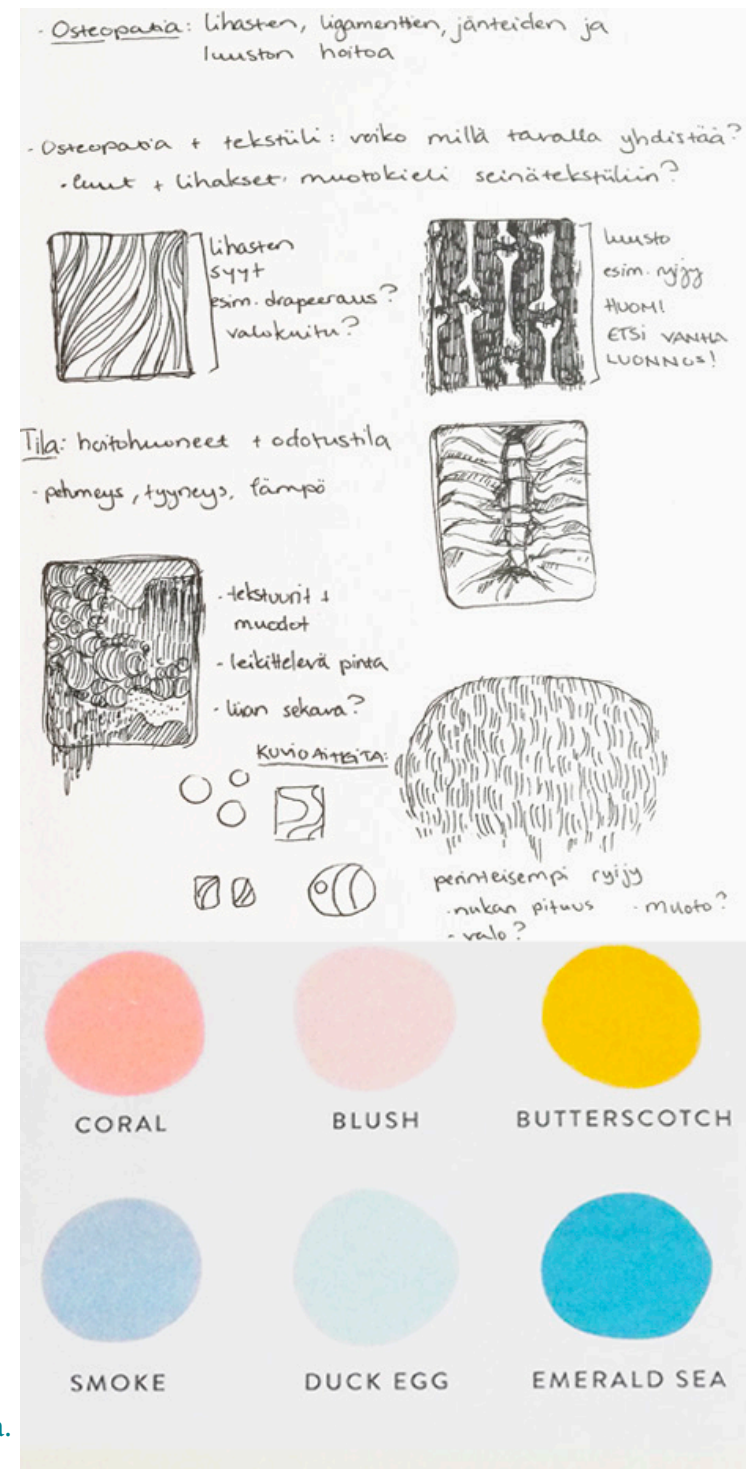 · Osteopatia: lihasten, ligamenttien, jänteiden ja
luuston hoitoa
· Osteopatia + tekstiili: voiko millä tavalla yhdistää?
· luut + lihakset: muotokieli seinätekstiiliin?
lihasten
syyt
esim. drapeeraus?
valokuitu?
luusto
esim. ryijy
HUOM!
ETSI VANHA
LUONNOS!
Tila: hoitohuoneet + odotustila
· pehmeys, tyyneys, lämpö
· tekstuurit +
muodot
· leikittelevä pinta
· liian sekava?
KUVIOAIHEITA:
perinteisempi ryijy
· nukan pituus · muoto?
· valo?
CORAL
BLUSH
BUTTERSCOTCH
SMOKE
DUCK EGG
EMERALD SEA